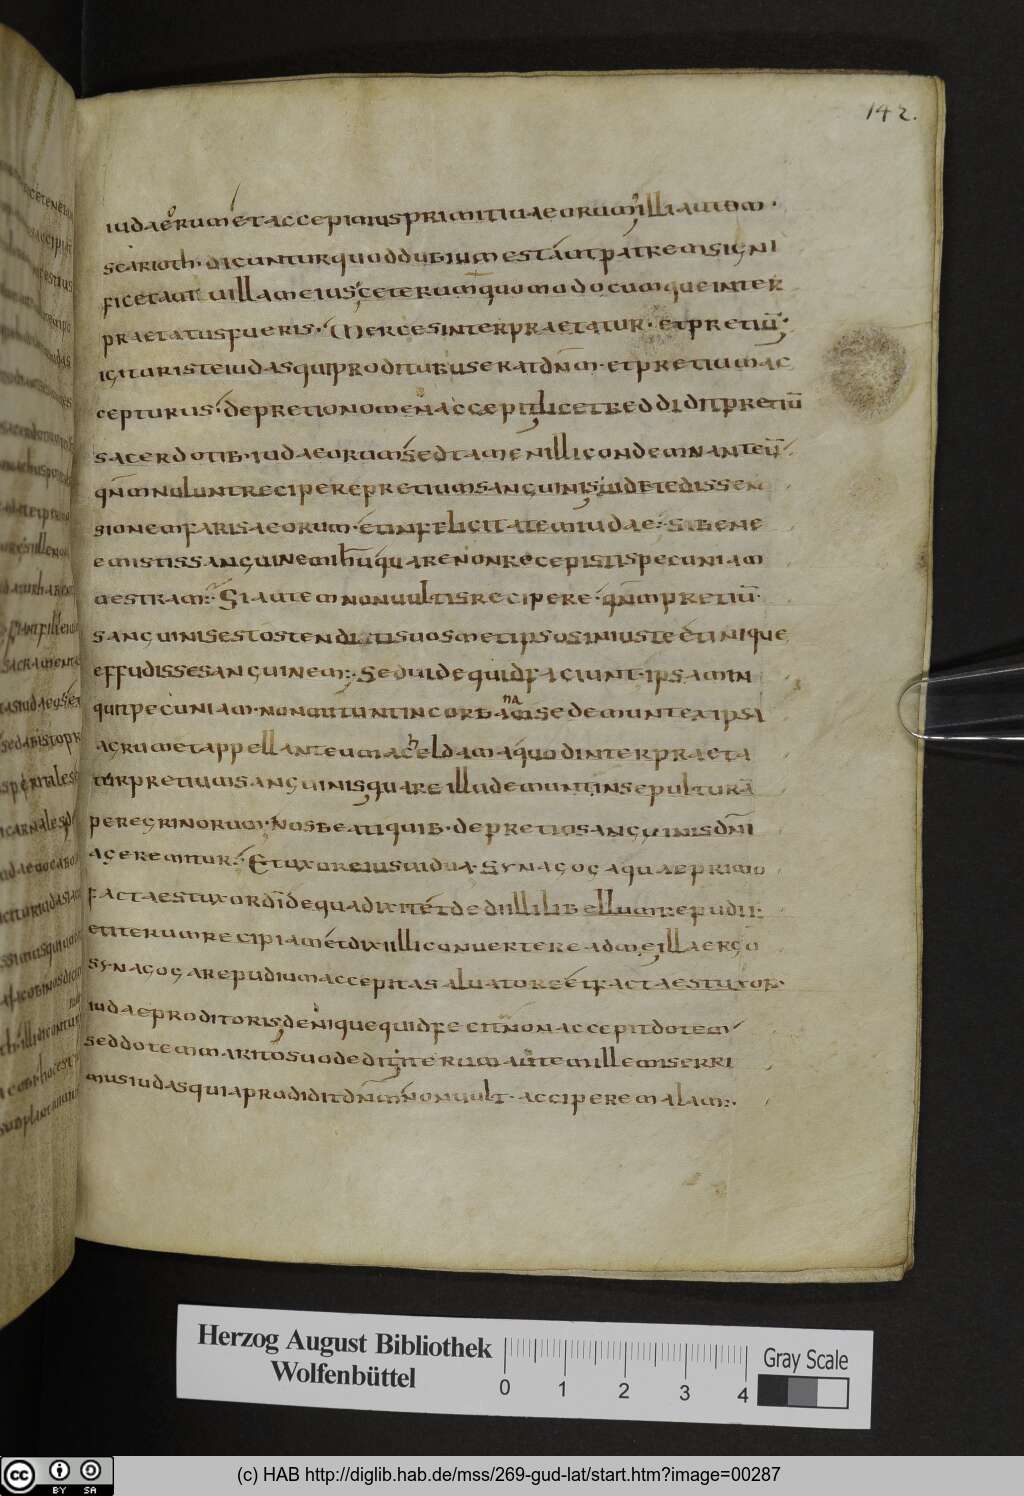 142.
iudaeorum et accepimus primitiua eorum illi autem
scarioth. dicuntur quod dubium est aut patrem signi
ficet aut uillam eius ceterum quomodocumque inter
praetatus fueris. Merces interpraetatur. et pretiū.
igitur iste iudas qui proditurus erat dn̄m. et pretium ac
cepturus. de pretio nomen accepit licet reddidit pretiū
sacerdotib. iudaeorum sed tamen illi condemnante
qn̄m nolunt recipere pretium sanguinis
sionem farisaeorum. et infelicitatem iudae. si bene
emistis sanguinem ihū quare non recepistis pecuniam
uestram. Si autem non uultis recipere qn̄m pretiū.
sanguinis est ostenditis uosmetipsos iniuste et inique
effudisse sanguinem. Sed uide quid faciunt. ipsam in
quit pecuniam. non mittunt in corbanam sed emunt ex ipsa
agrum et appellant eum acheldama quod interpraeta
tur pretium sanguinis quare illud emunt in sepulturā
peregrinorum. Nos beati qui ib. de pretio sanguinis dn̄i
ageremur. Et uxor eius uidua. Synagoga quae primo
facta est uxor dī de qua dixit et dedi illi libellum repudii.
et iterum recipiam et dixi illi conuertere ad me illa ergo
synagoga repudium accepit a saluatore et facta est uxor
iudae proditoris denique quid fecit non accepit dotem
sed dotem marito suo dedit iterum autem ille miserri
mus iudas quia prodidit dn̄m non uult. accipere malam.
Herzog August Bibliothek
Wolfenbüttel
0 1 2 3 4
Gray Scale
cc BY SA
(c) HAB http://diglib.hab.de/mss/269-gud-lat/start.htm?image=00287